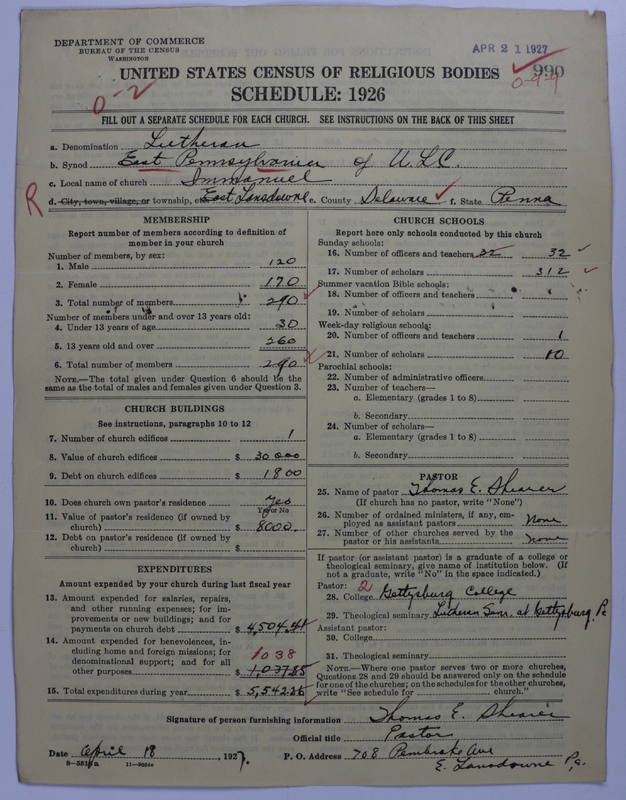 DEPARTMENT OF COMMERCE
BUREAU OF THE CENSUS
WASHINGTON
APR 21 1927
UNITED STATES CENSUS OF RELIGIOUS BODIES
990
0-9-9
SCHEDULE: 1926
0-2
FILL OUT A SEPARATE SCHEDULE FOR EACH CHURCH. SEE INSTRUCTIONS ON THE BACK OF THIS SHEET
a. Denomination Lutheran
b. Synod East Pennsylvania of U.L.C.
c. Local name of church Immanuel
R
d. City, town, village, or township, etc East Lansdowne e. County Delaware f. State Penna
MEMBERSHIP
Report number of members according to definition of member in your church
Number of members, by sex:
1. Male 120
2. Female 170
3. Total number of members 290
Number of members under and over 13 years old:
4. Under 13 years of age 30
5. 13 years old and over 260
6. Total number of members 290
NOTE.—The total given under Question 6 should be the
same as the total of males and females given under Question 3.
CHURCH BUILDINGS
See instructions, paragraphs 10 to 12
7. Number of church edifices 1
8. Value of church edifices $ 30000
9. Debt on church edifices $ 1800
10. Does church own pastor's residence Yes
Yes or No
11. Value of pastor's residence (if owned by
church) $ 8000.
12. Debt on pastor's residence (if owned by
church) $
EXPENDITURES
Amount expended by your church during last fiscal year
13. Amount expended for salaries, repairs,
and other running expenses; for im-
provements or new buildings; and for
payments on church debt $ 4,504.41
14. Amount expended for benevolences, in-
cluding home and foreign missions; for
denominational support; and for all
1038
other purposes $ 1,037.85
15. Total expenditures during year $ 5,542.26
CHURCH SCHOOLS
Report here only schools conducted by this church
Sunday schools:
16. Number of officers and teachers 32 32
17. Number of scholars 312
Summer vacation Bible schools:
18. Number of officers and teachers
19. Number of scholars
Week-day religious schools:
20. Number of officers and teachers 1
21. Number of scholars 10
Parochial schools:
22. Number of administrative officers
23. Number of teachers—
a. Elementary (grades 1 to 8)
b. Secondary
24. Number of scholars—
a. Elementary (grades 1 to 8)
b. Secondary
PASTOR
25. Name of pastor Thomas E. Shearer
(If church has no pastor, write "None")
26. Number of ordained ministers, if any, em-
ployed as assistant pastors None
27. Number of other churches served by the
pastor or his assistants None
If pastor (or assistant pastor) is a graduate of a college or
theological seminary, give name of institution below. (If
not a graduate, write "No" in the space indicated.)
Pastor: 2
28. College Gettysburg College
29. Theological seminary Lutheran Sem. at Gettysburg, Pa
Assistant pastor:
30. College
31. Theological seminary
NOTE.—Where one pastor serves two or more churches,
Questions 28 and 29 should be answered only on the schedule
for one of the churches; on the schedules for the other churches,
write "See schedule for church."
Signature of person furnishing information Thomas E. Shearer
Official title Pastor
Date April 18, 1927. P. O. Address 708 Pembroke Ave
E. Lansdowne Pa.
11—9054a